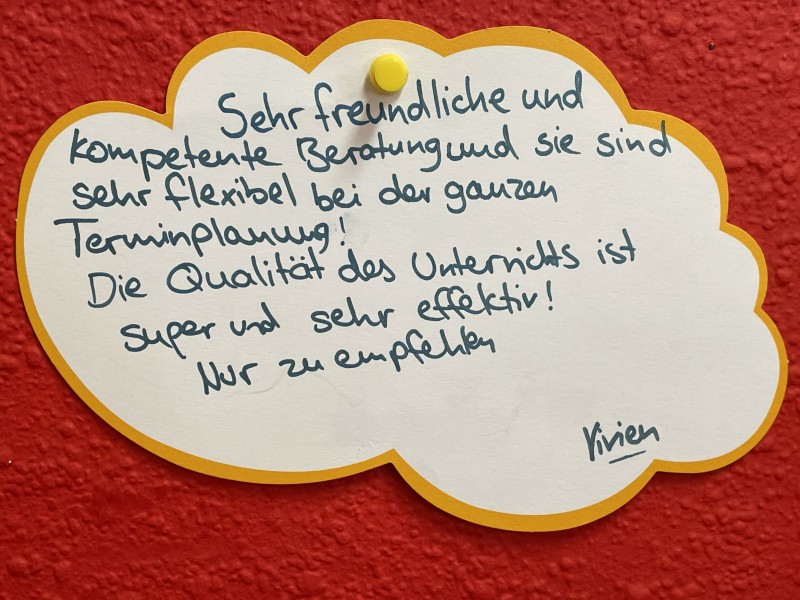 Sehr freundliche und
kompetente Beratung und sie sind
sehr flexibel bei der ganzen
Terminplanung!
Die Qualität des Unterrichts ist
super und sehr effektiv!
Nur zu empfehlen
Vivien